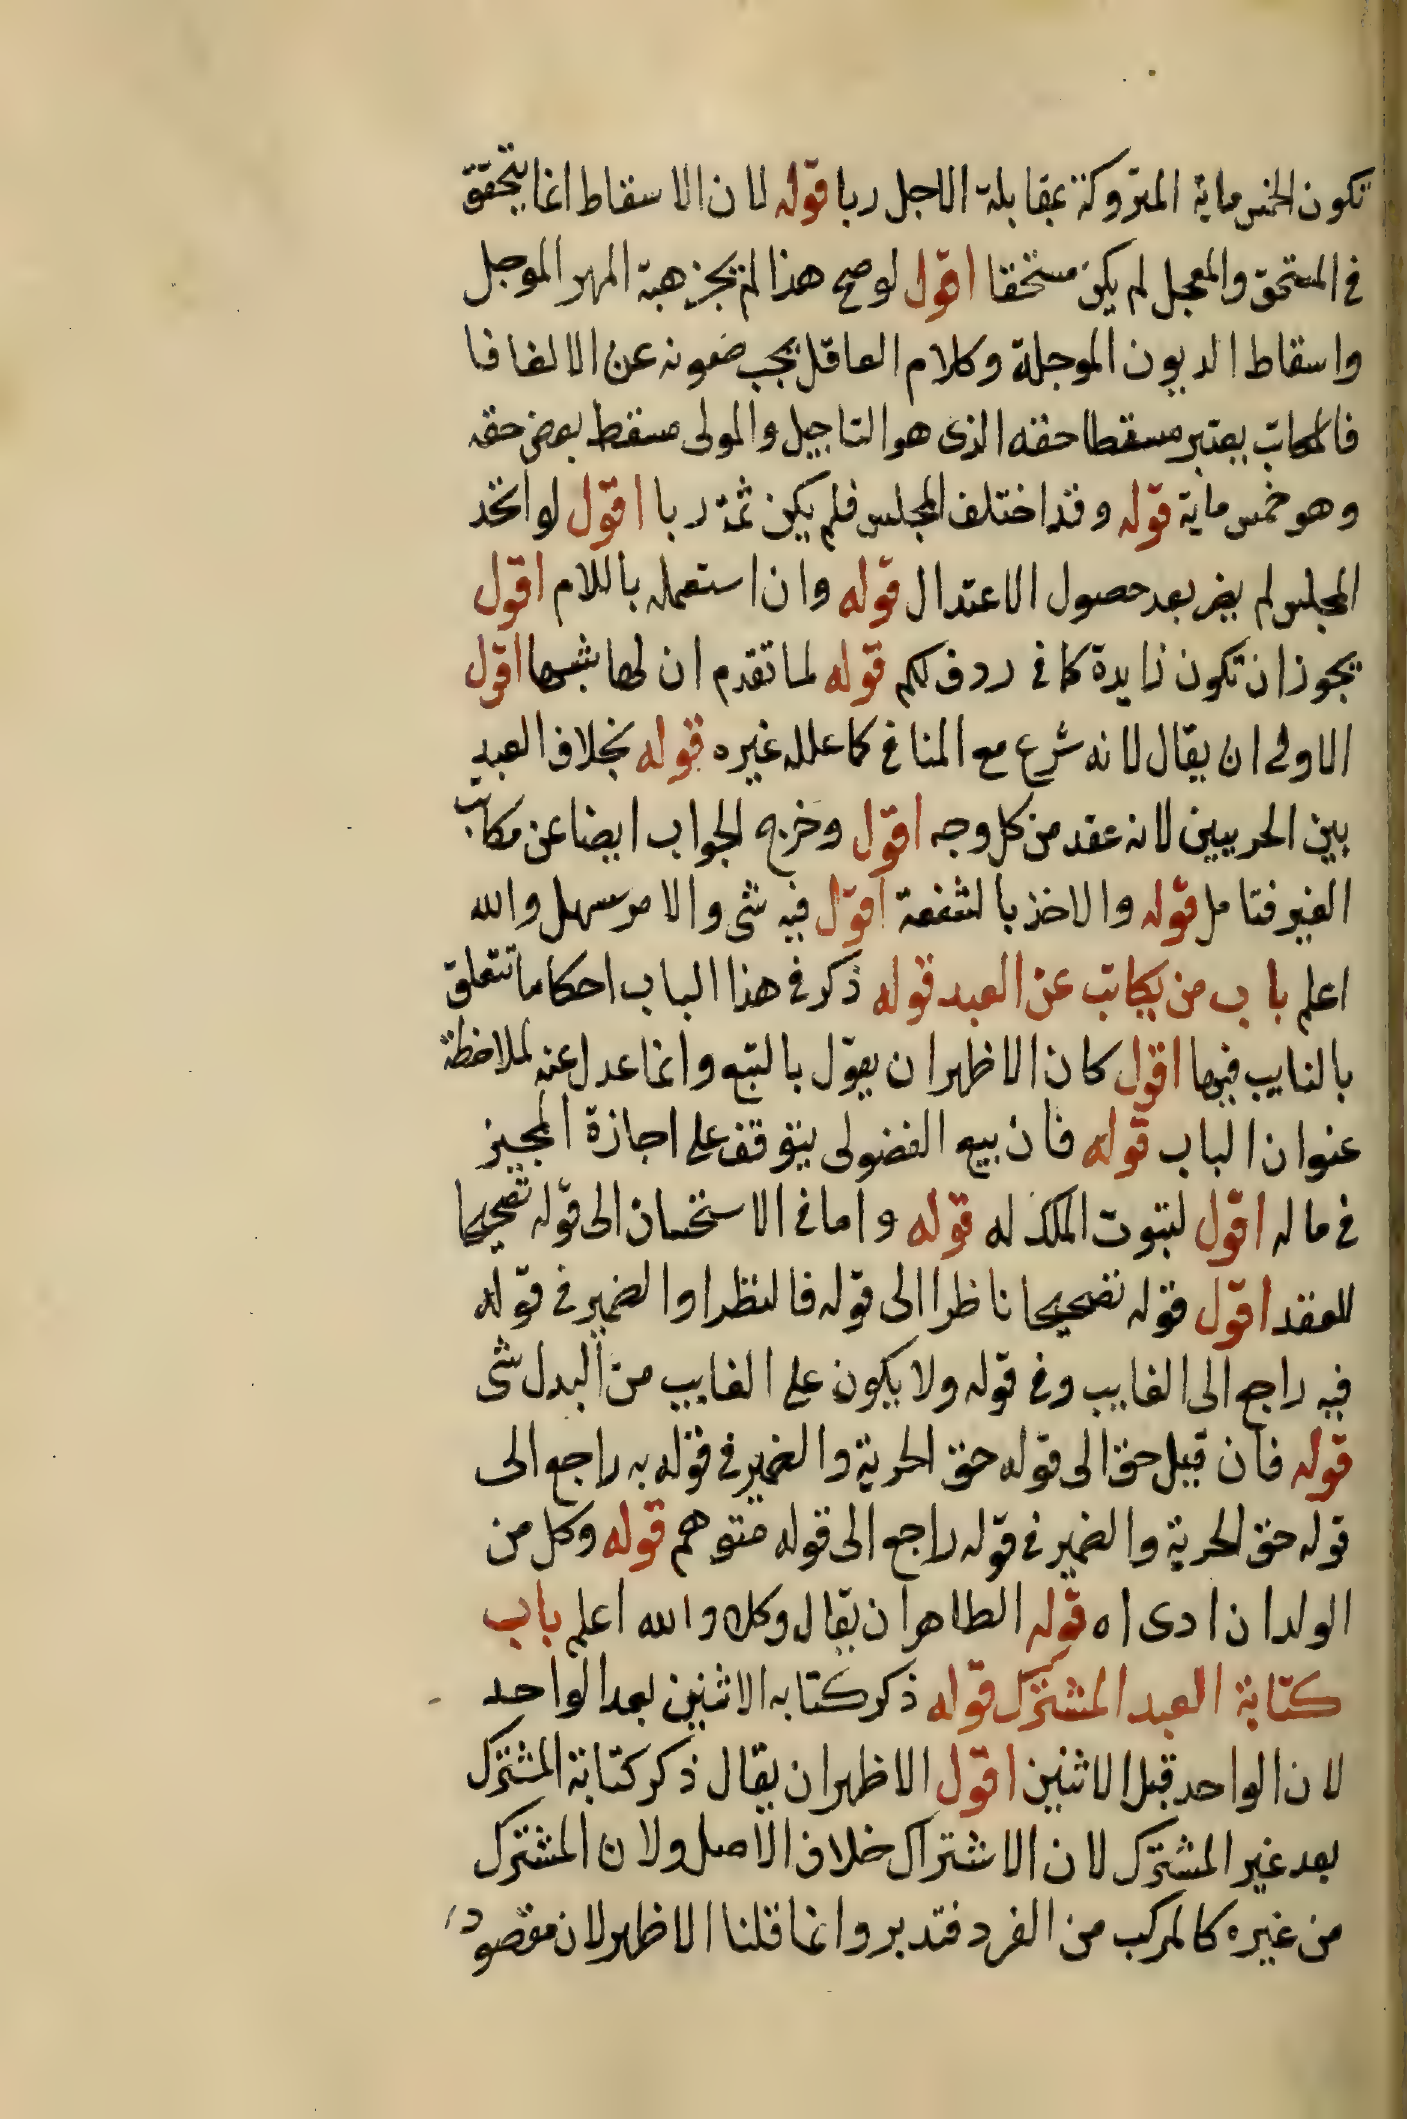 تكون الخمس ماية المتروكة بمقابلة الاجل ربا قوله لان الاسقاط انما يتحقق
في المستحق والمعجل لم يكن مستحقا اقول لو صح هذا لم يجز هبة المهر الموجل
واسقاط الديون الموجلة وكلام العاقل يجب صونه عن الالغا فا
فالمكاتب يعتبر مسقطا حقه الذى هو التاجيل والمولى مسقط بعض حقه
وهو خمس ماية قوله وقد اختلف المجلس فلم يكن ثمة ربا اقول لو اتحد
المجلس لم يضر بعد حصول الاعتدال قوله وان استعمله باللام اقول
يجوز ان تكون زايدة كما في ردف لكم قوله لما تقدم ان لها شبها اقول
الاولى ان يقال لانه شرع مع المنافي كما علله غيره قوله بخلاف العبد
بين الحربيين لانه عقد من كل وجه اقول وخرج الجواب ايضا عن مكاتب
الغير فتامل قوله والاخذ بالشفعة اقول فيه شى والامر سهل والله
اعلم باب من يكاتب عن العبد قوله ذكر في هذا الباب احكاما تتعلق
بالنايب فيها اقول كان الاظهر ان يقول بالتبع وانما عدل عنه لملاحظة
عنوان الباب قوله فان بيع الفضولى يتوقف على اجازة المجيز
في ماله اقول لثبوت الملك له قوله واما في الاستحسان الى قوله تصحيحا
للعقد اقول قوله تصحيحا ناظرا الى قوله فالنظرا والضمير في قوله
فيه راجع الى الغايب وفي قوله ولا يكون على الغايب من البدل شى
قوله فان قيل حق الى قوله حق الحرية والضمير في قوله به راجع الى
قوله حق الحرية والضمير في قوله راجع الى قوله متوهم قوله وكل من
الولدان ادى اه قوله الظاهر ان يقال وكل والله اعلم باب
كتابة العبد المشترك قوله ذكر كتابه الاثنين بعد الواحد
لان الواحد قبل الاثنين اقول الاظهر ان يقال ذكر كتابة المشترك
بعد غير المشترك لان الاشتراك خلاف الاصل ولان المشترك
من غيره كالمركب من الفرد فتدبر وانما قلنا الاظهر لان مقصود